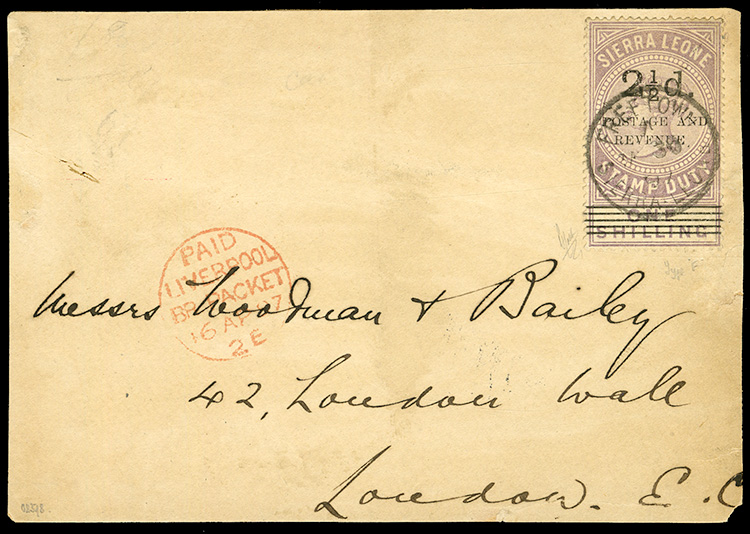 SIERRA LEONE
2½d.
POSTAGE AND
REVENUE.
STAMP DUTY
ONE
SHILLING
FREETOWN
SIERRA-LEONE
PAID
LIVERPOOL
BR. PACKET
16 AP 97
2 E
Messrs Woodman & Bailey
42, London Wall
London. E. C